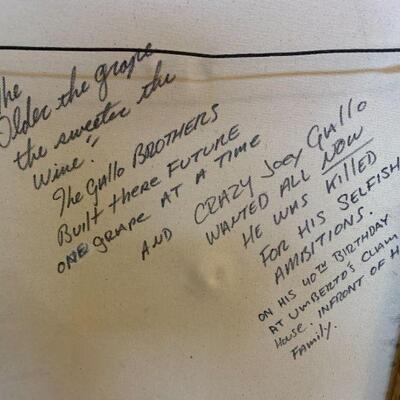 The
Older the grape
the sweeter the
wine."
The Gallo BROTHERS
Built there FUTURE
ONE grape AT A TIME
AND CRAZY Joey Gallo
WANTED ALL NOW
HE WAS KILLED
FOR HIS SELFISH
AMBITIONS.
ON HIS 40TH BIRTHDAY
AT UMBERTO'S CLAM
HOUSE. INFRONT OF H
FAMILY.